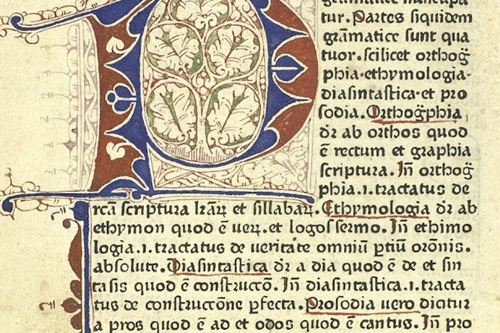 gramatice nuncupa
tur. Partes siquidem
gramatice sunt qua
tuor. scilicet orthog̃
phia· ethymologia·
diasintastica· et pro
sodia. Orthog̃phia
dr̃ ab orthos quod
ē rectum et graphia
scriptura. In̄ orthog̃
phia .i. tractatus de
rcã scriptura lr̃aꝝ et sillabaꝝ. Ethymologia dr̃ ab
ethymon quod ē veꝝ. et logos sermo. In̄ ethimo
logia .i. tractatus de veritate omniū ꝑtiū or̃onis.
absolute. Diasintastica dr̃ a dia quod ē de et sin
tasis quod ē constructõ. In̄ diasintastica .i. tracta
tus de constructõne ꝑfecta. Prosodia vero dicitur
a pros quod ē ad et odos quod ē cantus. In̄ pro